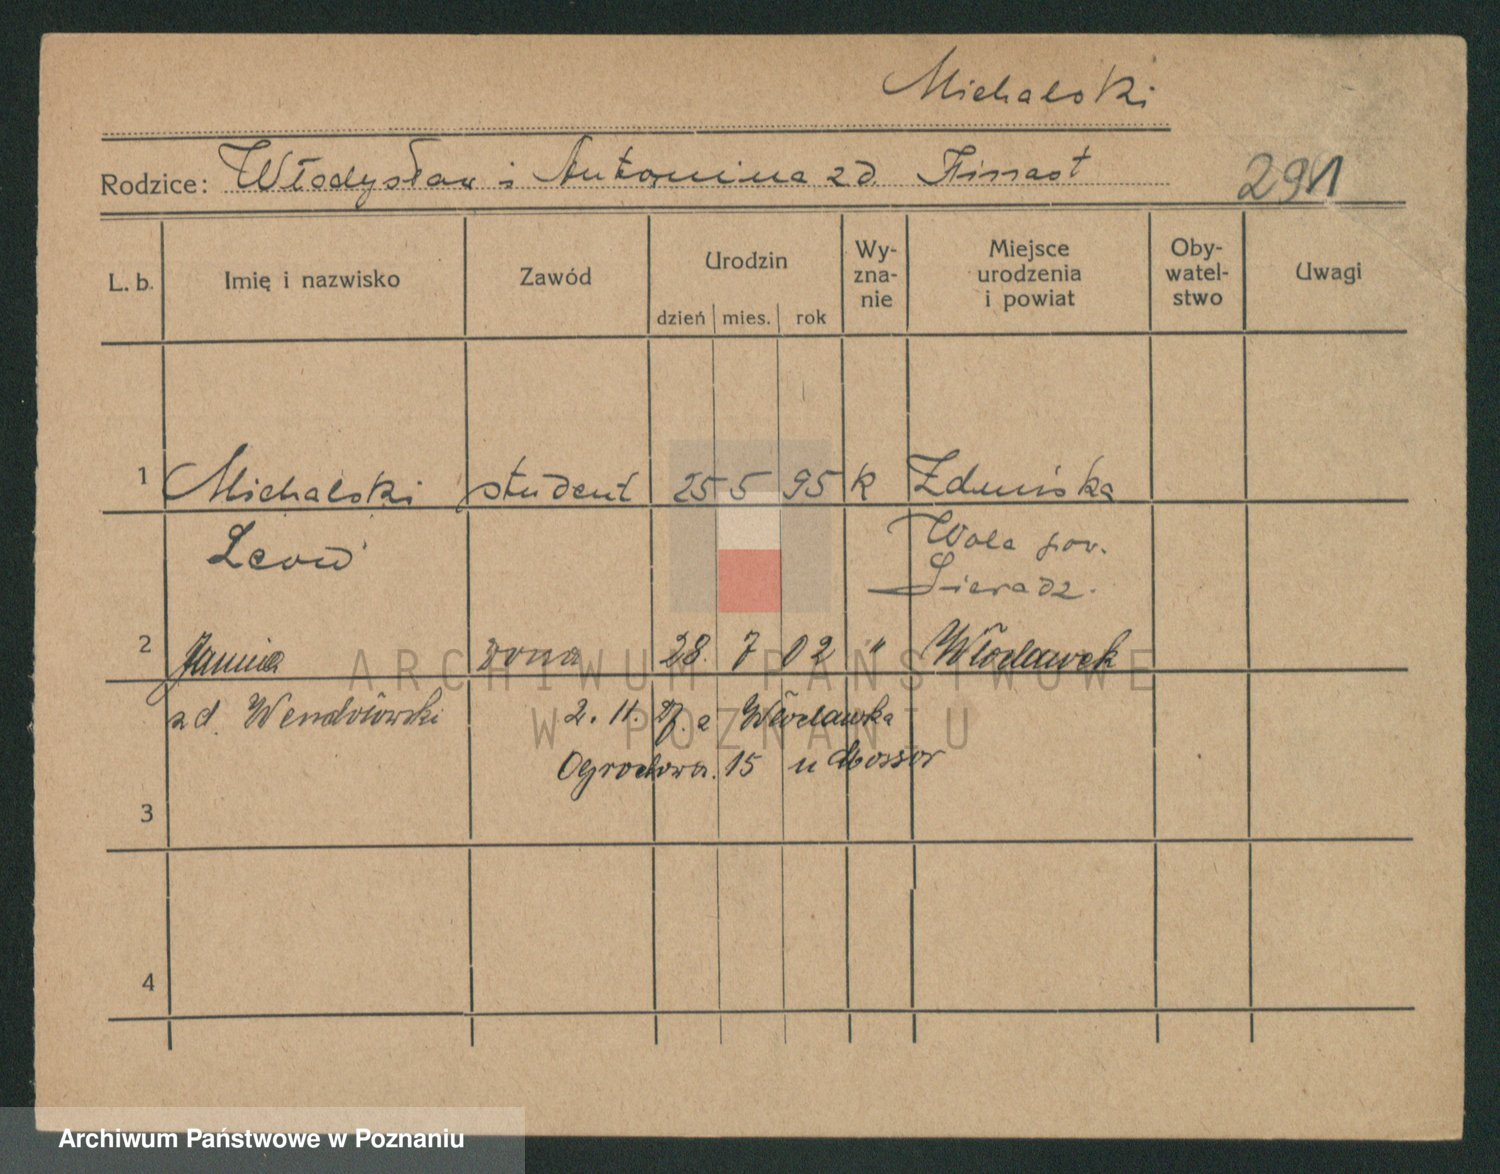 Michalski
Rodzice: Włodysław i Antonina zd.
291
L. b. Imię i nazwisko Zawód Urodzin dzień mies. rok Wy-zna-nie Miejsce urodzenia i powiat Oby-watel-stwo Uwagi
1 Michalski student 25 5 95 k Zduńska
Leon Wola pow.
Sieradz.
2 Janina żona 28. 7 02 " Włocławek
zd. 2. 11. 27. z Włocławka
Ogrodowa 15 u
3
4
ARCHIWUM PAŃSTWOWE
W POZNANIU
Archiwum Państwowe w Poznaniu